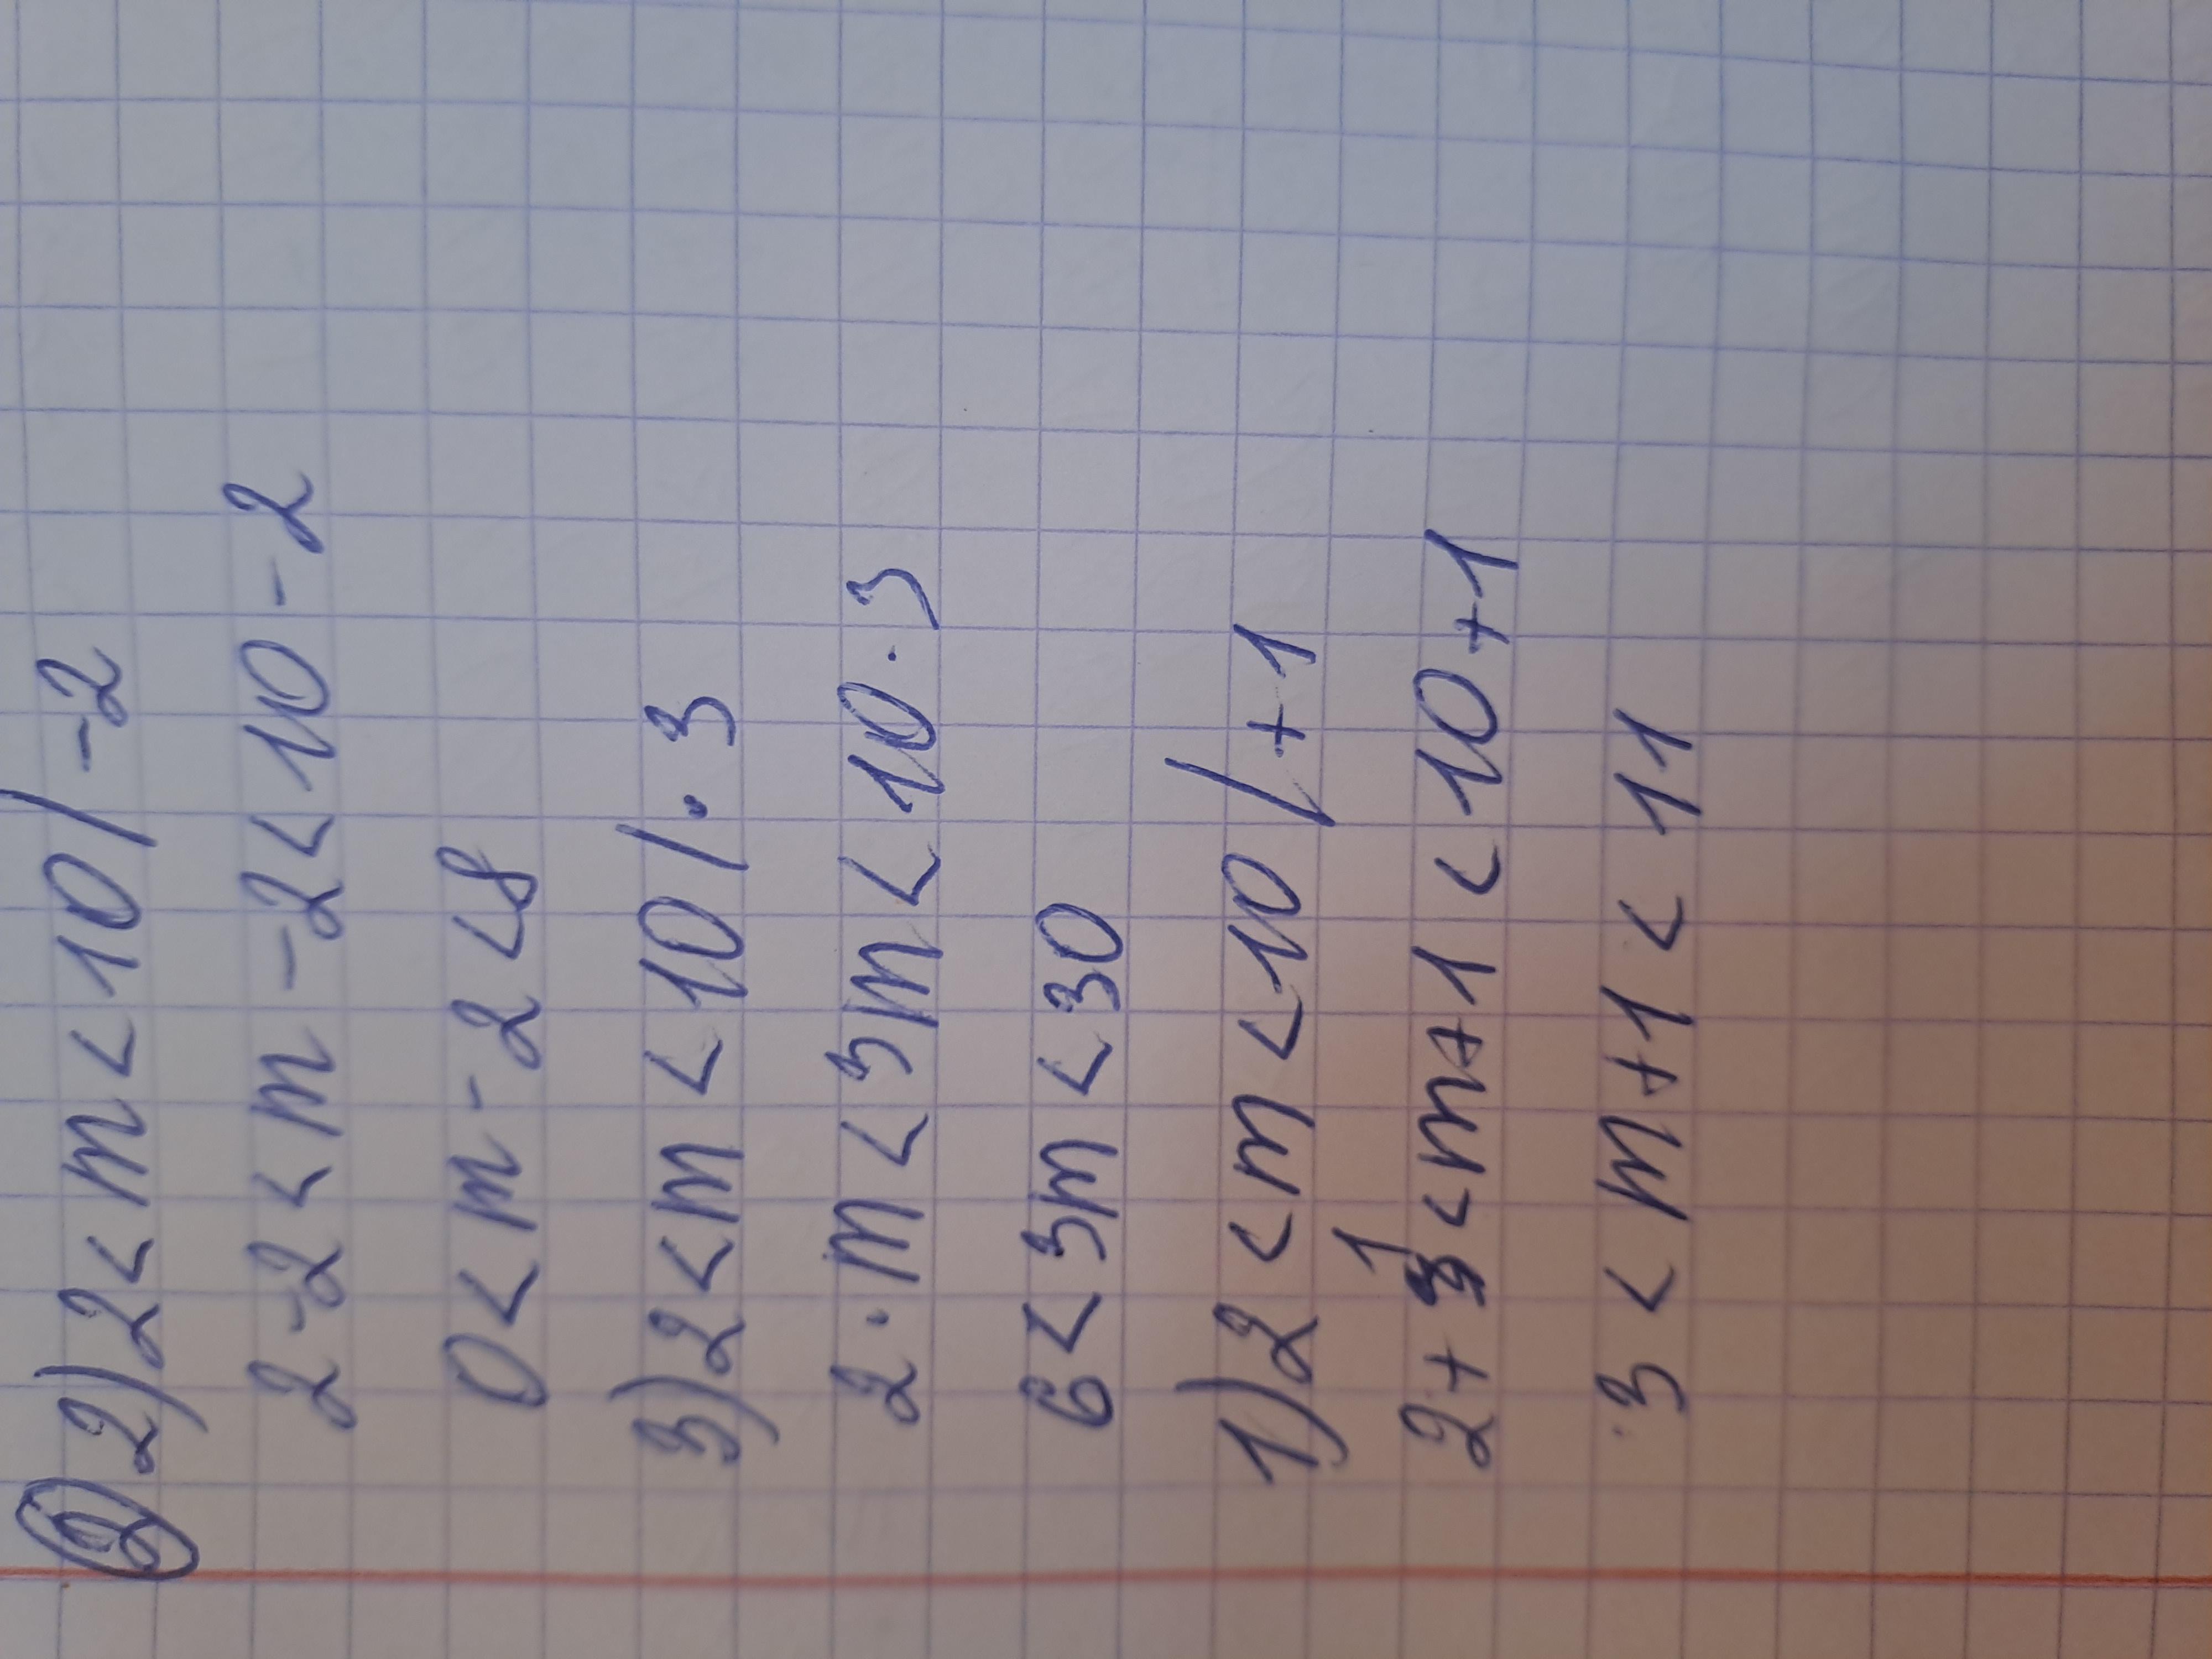 2) 2 < m < 10 / -2
2 - 2 < m - 2 < 10 - 2
0 < m - 2 < 8
3) 2 < m < 10 / · 3
2 · m < 3m < 10 · 3
6 < 3m < 30
1) 2 < m < 10 / + 1
2 + 1 < m + 1 < 10 + 1
3 < m + 1 < 11